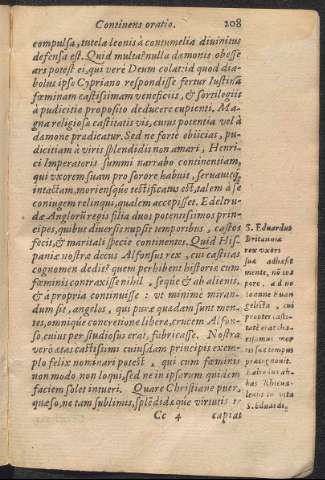 Continens oratio. 208
compulsa, tutela leonis à contumelia diuinitus
defensa est. Quid multa? nulla dæmonis obesse
ars potest ei, qui verè Deum colat: id quod dia-
bolus ipse Cypriano respondisse fertur Iustina
fœminam castissimam veneficiis, & sortilegiis
à pudicitiæ proposito deducere cupienti. Ma-
gna religiosæ castitatis vis, cuius potentia vel à
dæmone prædicatur. Sed ne fortè obiicias, pu-
dicitiam à viris splendidis non amari, Henri-
ci Imperatoris summi narrabo continentiam,
qui vxorem suam pro sorore habuit, seruauitq́;
intactam, moriensque testificatus est, talem à se
coniugem relinqui, qualem accepisset. Edeltru-
dæ Anglorũ regis filia duos potentissimos prin-
cipes, quibus diuersis nupsit temporibus, castos
fecit, & maritali specie continentes. Quid His-
paniæ nostræ decus Alfonsus rex, cui castitas
cognomen dedit? quem perhibent historiæ cum
fœminis contraxisse nihil, seque & ab alienis,
& à propria continuisse: vt minimè miran-
dum sit, angelos, qui puræ quædam sunt men-
tes, omnique concretione liberæ, crucem Alfon-
so, cuius per studiosus erat, fabricasse. Nostra
verò ætas castissimi cuiusdam principis exem-
plo felix nominari potest, qui cum fœminis
non modo non loqui, sed ne in ipsarum quidem
faciem solet intueri. Quare Christiane puer,
quæso, ne tam sublimis, splẽdidæque virtutis
S. Eduardus
Britanniæ
rex vxori
suæ adhæsit
mente, nõ cor
pore, ad no
ioanne Euan
gelista, cui
propter casti-
tatẽ erat cha-
rissimus mor
tis suæ tempus
præcognouit.
in vita
S. Eduardi.
Cc 4 capiat